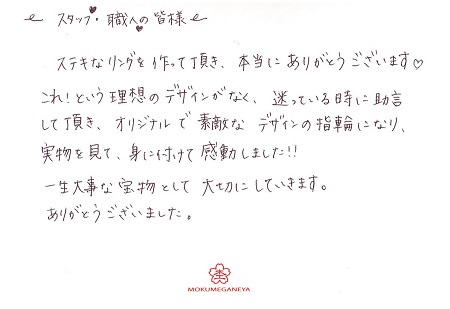 スタッフ・職人の皆様
ステキなリングを作って頂き、本当にありがとうございます♡
これ!という理想のデザインがなく、迷っている時に助言
して頂き、オリジナルで素敵なデザインの指輪になり、
実物を見て、身に付けて感動しました!!
一生大事な宝物として大切にしていきます。
ありがとうございました。
MOKUMEGANEYA